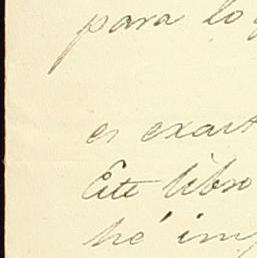 para lo
es exact
Este libro
he im